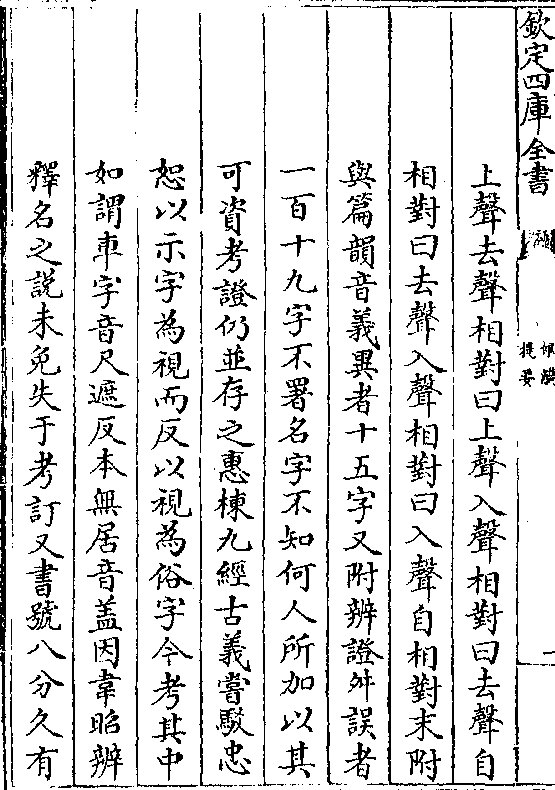 欽定四庫全書
提要
上聲去聲相對曰上聲入聲相對曰去聲自
相對曰去聲入聲相對曰入聲自相對末附
與篇韻音義異者十五字又附辨證舛誤者
一百十九字不署名字不知何人所加以其
可資考證仍並存之惠棟九經古義嘗駮忠
恕以示字為視而反以視為俗字今考其中
如謂車字音尺遮反本無居音盖因韋昭辨
釋名之説未免失于考訂又書號八分久有